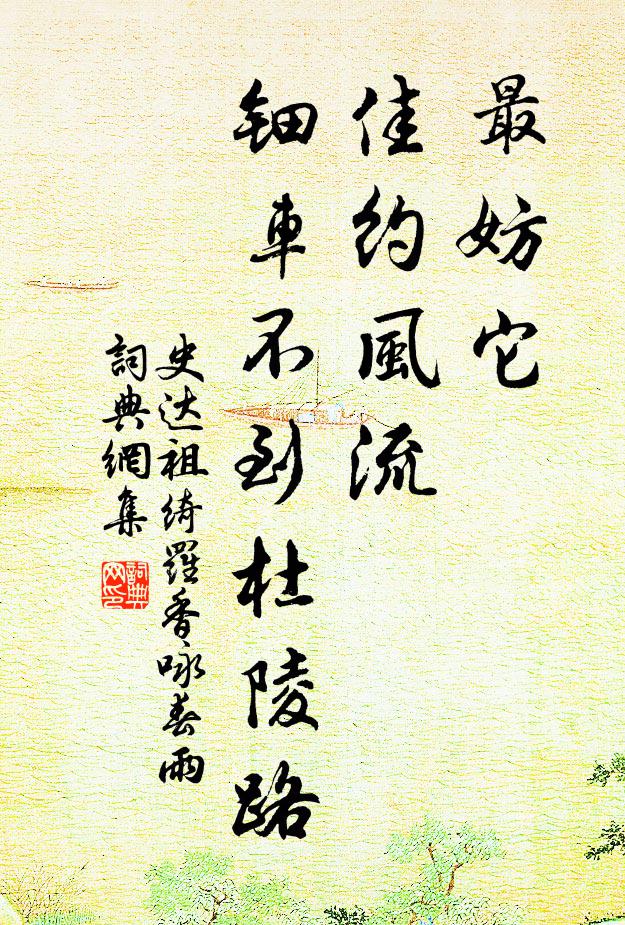 最妨它
佳約風流
鈿車不到杜陵路
史达祖綺羅香咏春雨
詞典網集
詞典
网印